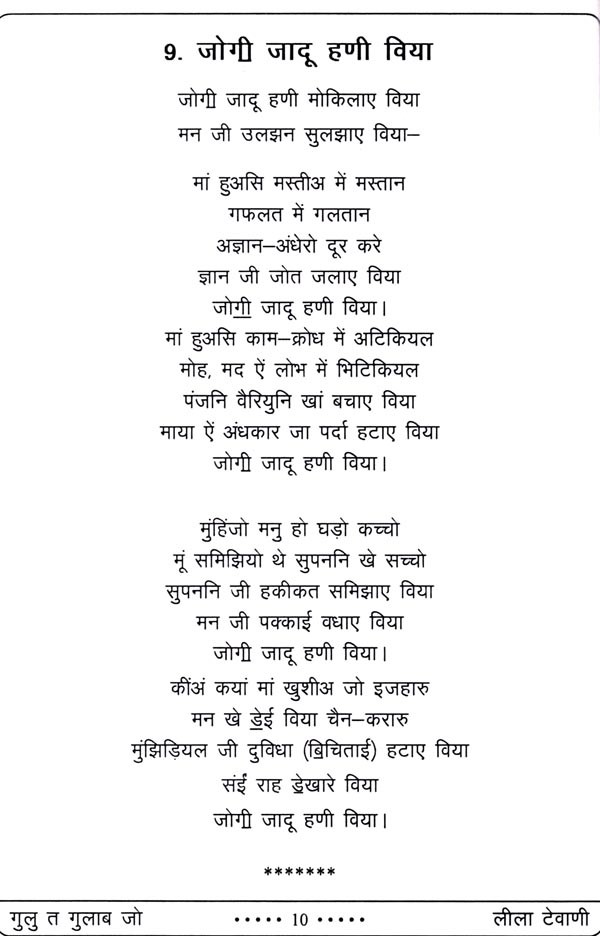 9. जोॻी जादू हणी विया
जोॻी जादू हणी मोकिलाए विया
मन जी उलझन सुलझाए विया–
मां हुअसि मस्तीअ में मस्तान
गफलत में गलतान
अज्ञान–अंधेरो दूर करे
ज्ञान जी जोत जलाए विया
जोॻी जादू हणी विया।
मां हुअसि काम–क्रोध में अटिकियल
मोह, मद ऐं लोभ में भिटिकियल
पंजनि वैरियुनि खां बचाए विया
माया ऐं अंधकार जा पर्दा हटाए विया
जोॻी जादू हणी विया।
मुंहिंजो मनु हो घड़ो कच्चो
मूं समिझियो थे सुपननि खे सच्चो
सुपननि जी हकीकत समिझाए विया
मन जी पक्काई वधाए विया
जोॻी जादू हणी विया।
कींअं कयां मां खुशीअ जो इजहारु
मन खे ॾेई विया चैन–करारु
मुंझिड़ियल जी दुविधा (ॿिचिताई) हटाए विया
संईं राह ॾेखारे विया
जोॻी जादू हणी विया।
*******
गुलु त गुलाब जो ····· 10 ····· लीला टेवाणी